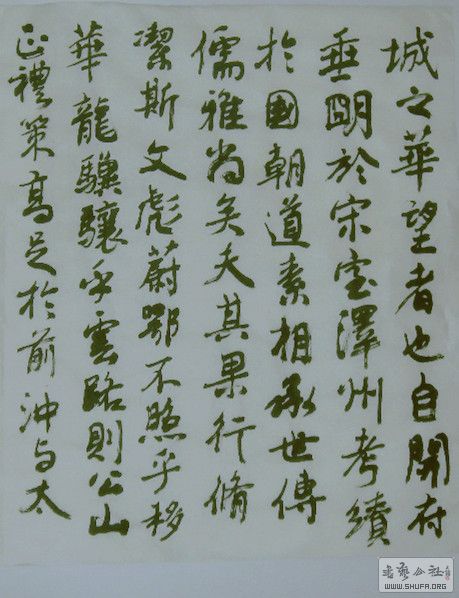 城之華望者也自開府
垂明於宋室澤州考績
於國朝道素相承世傳
儒雅尚矣夫其果行脩
潔斯文彪蔚鄂不照乎栘
華龍驥驤乎雲路則公山
正禮策高足於前沖与太
書藝公社
WWW.SHUFA.ORG